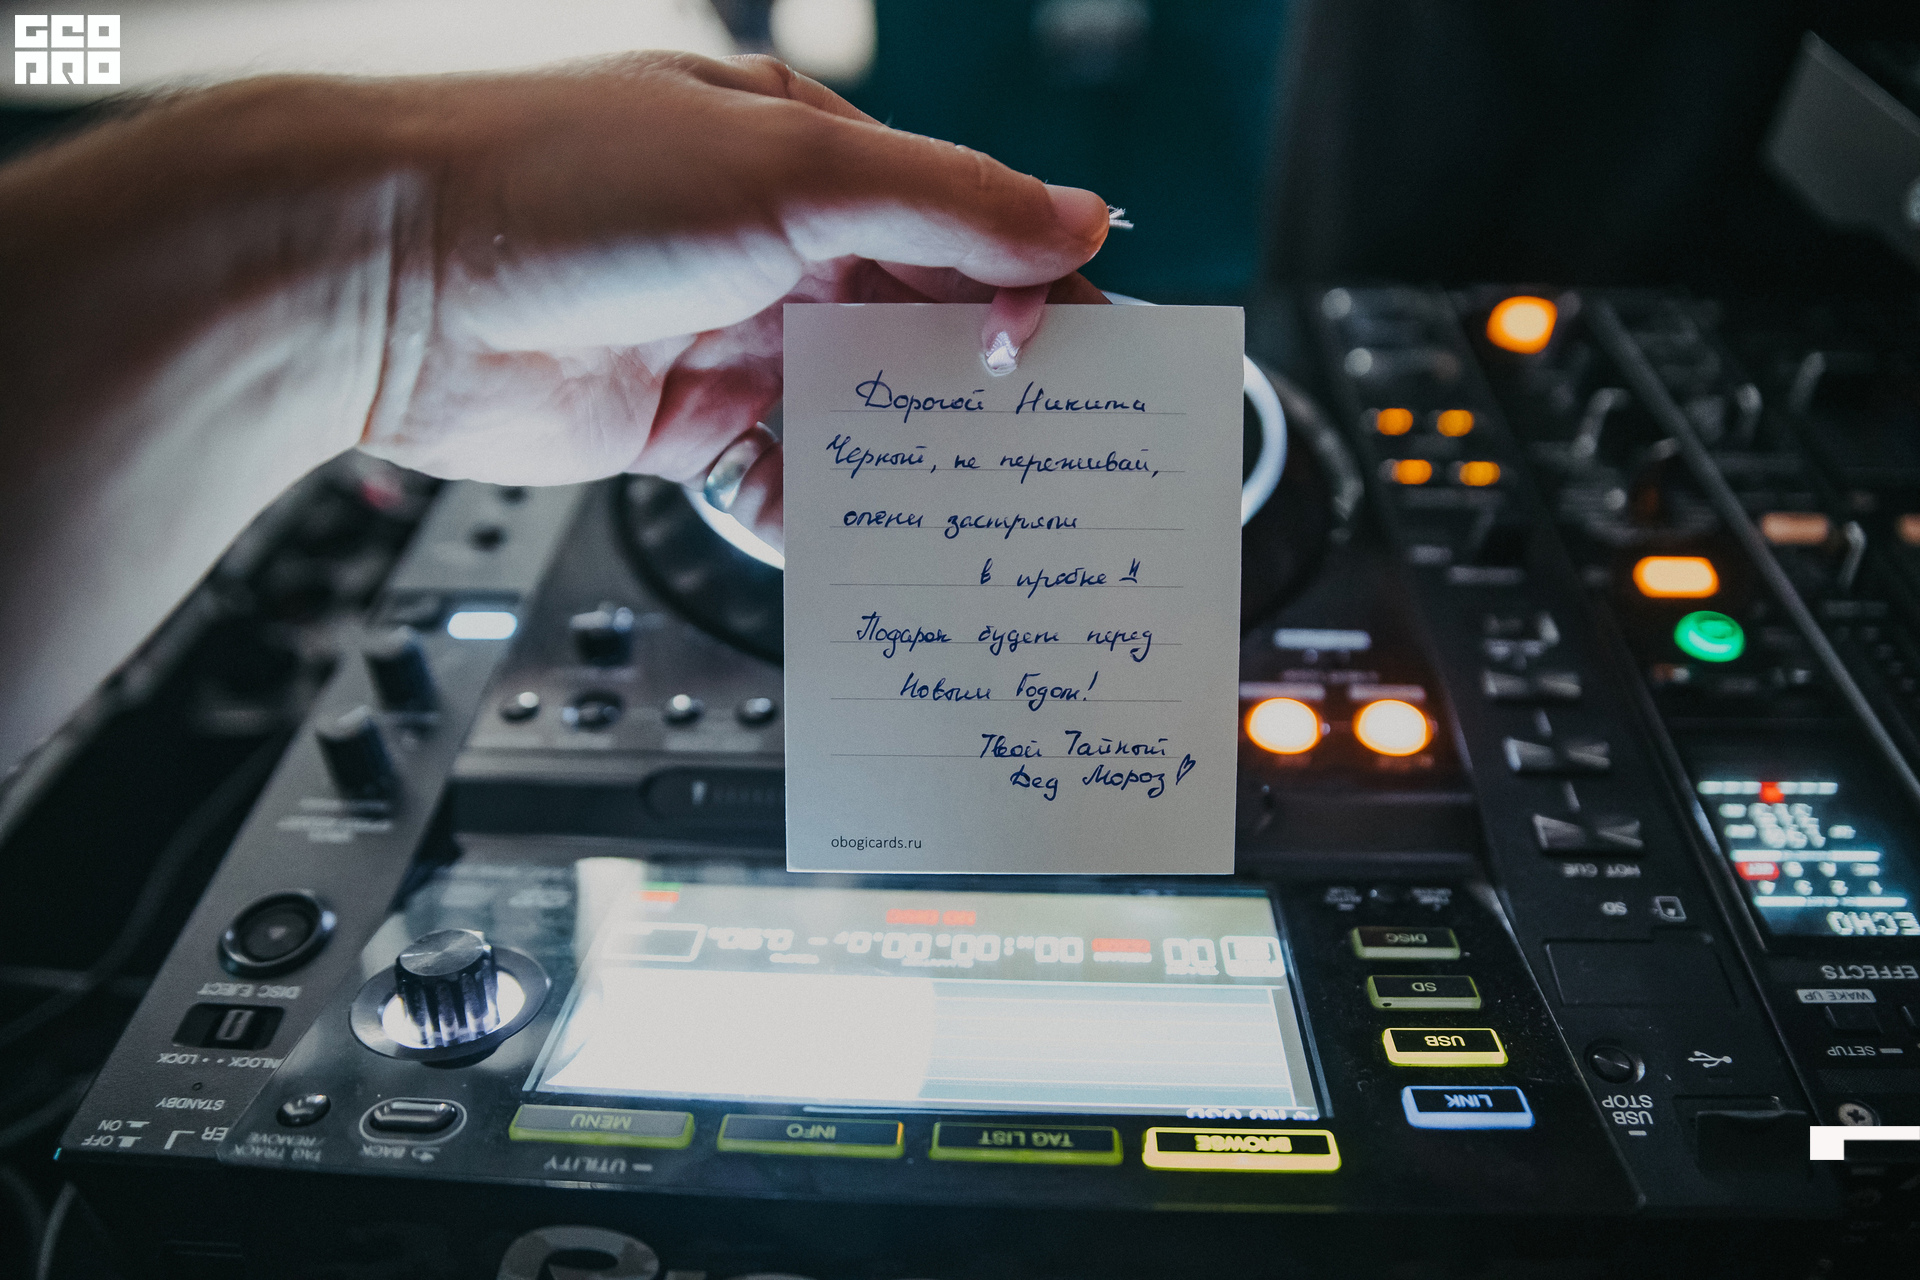 GEO
PRO
Дорогой Никита
Черный, не переживай,
олени застряли
в пробке !!
Подарок будет перед
Новым Годом!
Твой Тайный
Дед Мороз
obogicards.ru
HOT CUE
SD
DISC
SD
USB
LINK
ECHO
EFFECTS
WAKE UP
SETUP
USB
STOP
DISC EJECT
LOCK
STANDBY
ON
OFF
TAG TRACK
/REMOVE
BACK
MENU
UTILITY
INFO
TAG LIST
BROWSE